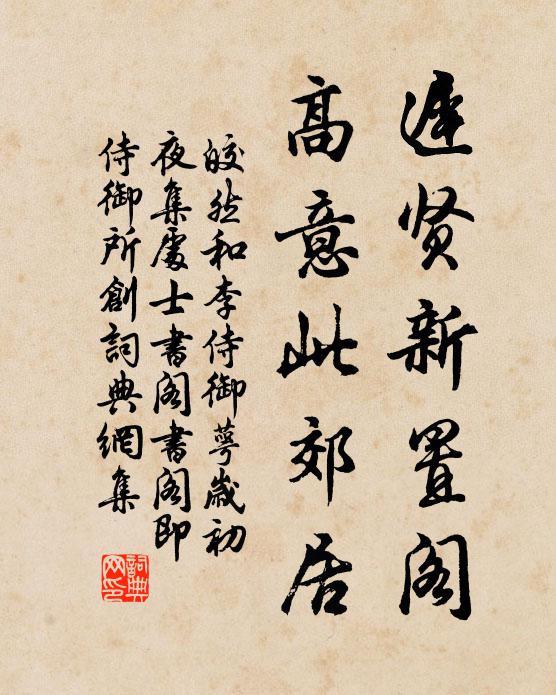 遲贤新置阁
高意此郊居
皎然和李侍御萼歲初
夜集處士書阁書阁即
侍御所創詞典網集
詞典网印